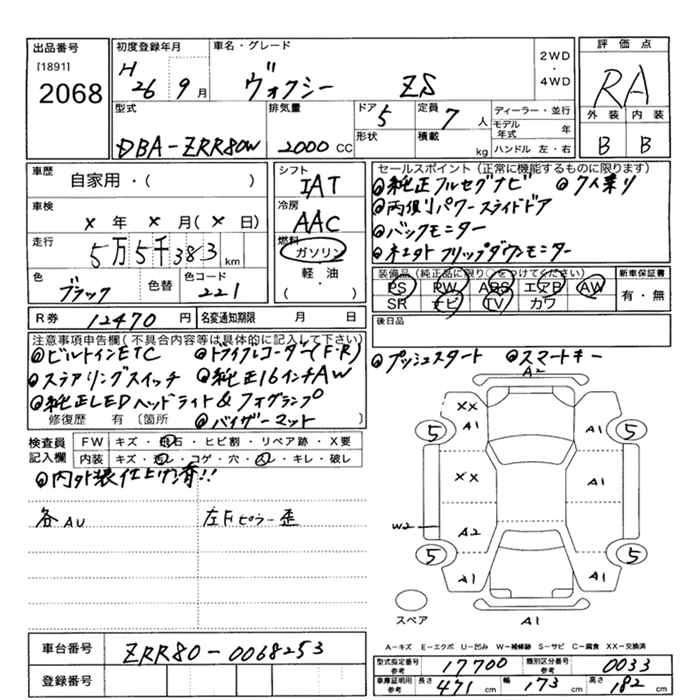 出品番号
[1891]
2068
初度登録年月
H
26 9月
車名・グレード
ヴォクシー ZS
2WD
・
4WD
評価点
RA
外装 内装
B B
型式
DBA-ZRR80W
排気量
2000 CC
ドア 5
形状
定員 7 人
積載 kg
ディーラー・並行
モデル年式 年
ハンドル 左・右
車歴
自家用・( )
車検
× 年 × 月(× 日)
走行
5万5千383 km
色
ブラック
色替
色コード
221
R券 12470 円
名変通知期限 月 日
シフト
IAT
冷房
AAC
燃料
ガソリン
軽・油
( )
セールスポイント(正常に機能するものに限ります)
純正フルセグナビ 7人乗り
両側パワースライドドア
バックモニター
純正フリップダウンモニター
装備品(純正品に限り○をつけてください)
PS PW ABS エアB AW
SR ナビ TV カワ
新車保証書
有・無
後日品
プッシュスタート スマートキー
注意事項申告欄(不具合内容等は具体的に記入して下さい)
ビルトインETC ドライブレコーダー(F・R)
ステアリングスイッチ 純正16インチAW
純正LEDヘッドライト&フォグランプ
修復歴 有 〔箇所
バイザーマット
検査員記入欄
FW キズ・飛石・ヒビ割・リペア跡・X要
内装 キズ・汚レ・コゲ・穴・スレ・キレ・破レ
内外装仕上げ済!!
各AU 左Fピラー歪
A2
XX A1
5 5
A1
XX A1
W2 A2
5 5
A1 A1
スペア
A1
A-キズ E-エクボ U-凹み W-補修跡 S-サビ C-腐食 XX-交換済
車台番号
ZRR80-0068253
登録番号
型式指定番号 参考 17700
類別区分番号 参考 0033
車庫証明用 参考
長さ 471 cm 幅 173 cm 高さ 182 cm